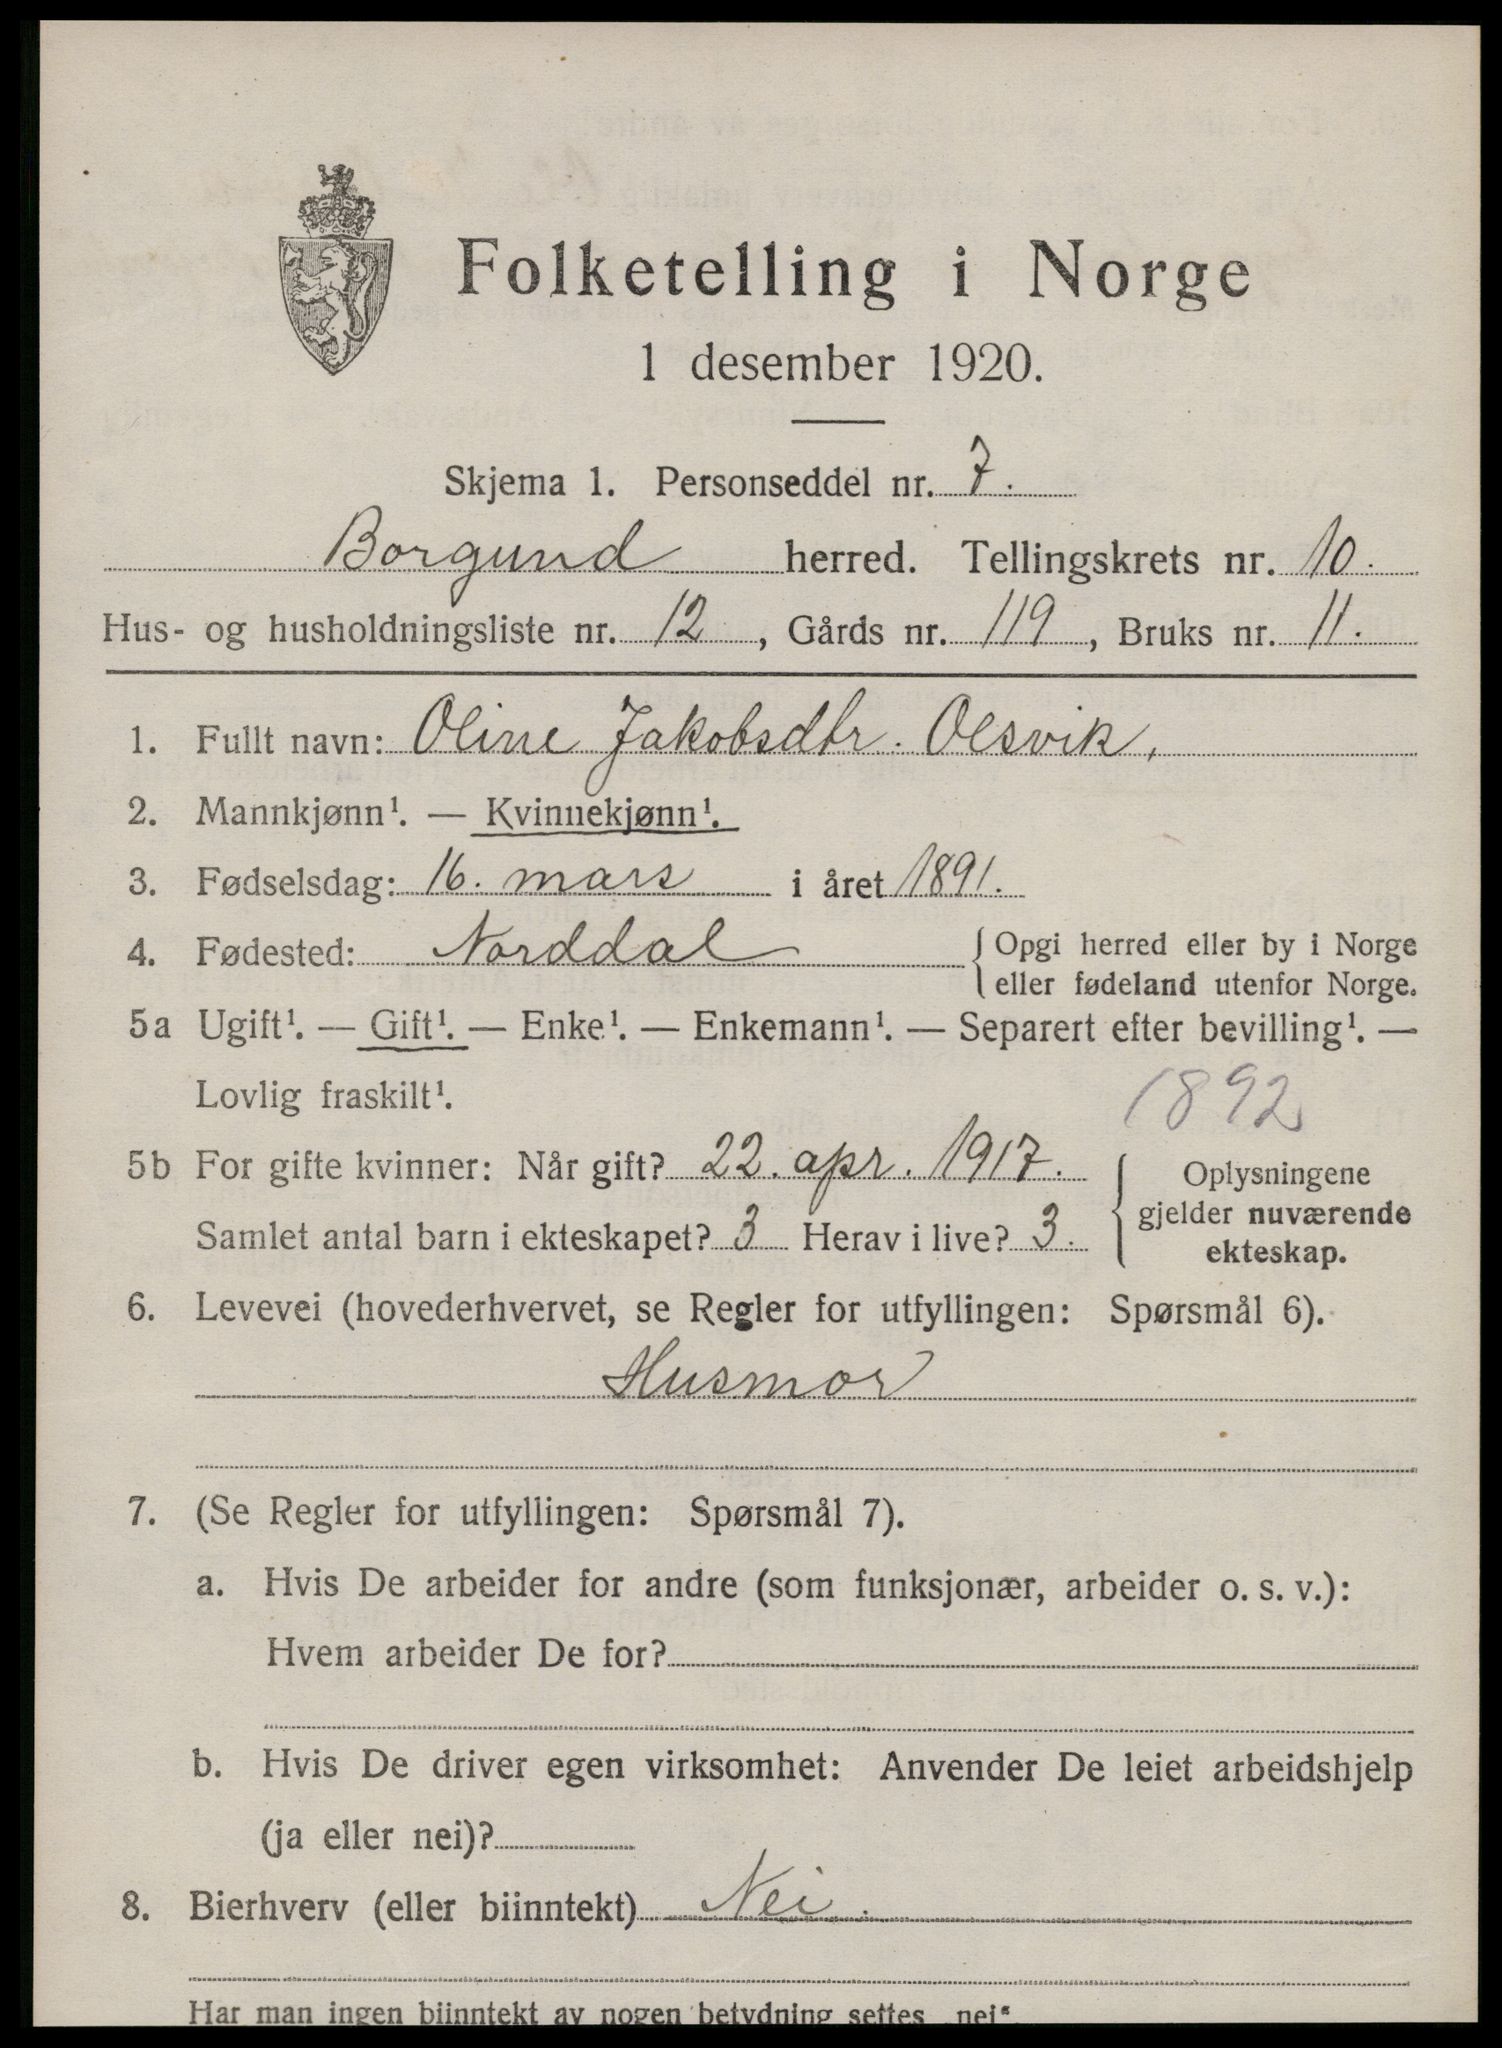 Folketelling i Norge
1 desember 1920.
Skjema 1. Personseddel nr. 7.
Borgund herred. Tellingskrets nr. 10.
Hus- og husholdningsliste nr. 12, Gårds nr. 119, Bruks nr. 11.
1. Fullt navn: Oline Jakobsdtr. Olsvik,
2. Mannkjønn¹. — Kvinnekjønn¹.
3. Fødselsdag: 16. mars i året 1891.
4. Fødested: Norddal { Opgi herred eller by i Norge
eller fødeland utenfor Norge.
5a Ugift¹. — Gift¹. — Enke¹. — Enkemann¹. — Separert efter bevilling¹. —
Lovlig fraskilt¹.
1892
5b For gifte kvinner: Når gift? 22. apr. 1917. { Oplysningene
gjelder nuværende
Samlet antal barn i ekteskapet? 3 Herav i live? 3.
ekteskap.
6. Levevei (hovederhvervet, se Regler for utfyllingen: Spørsmål 6).
Husmor
7. (Se Regler for utfyllingen: Spørsmål 7).
a. Hvis De arbeider for andre (som funksjonær, arbeider o. s. v.):
Hvem arbeider De for?
b. Hvis De driver egen virksomhet: Anvender De leiet arbeidshjelp
(ja eller nei)?
8. Bierhverv (eller biinntekt) Nei.
Har man ingen biinntekt av nogen betydning settes „nei“.